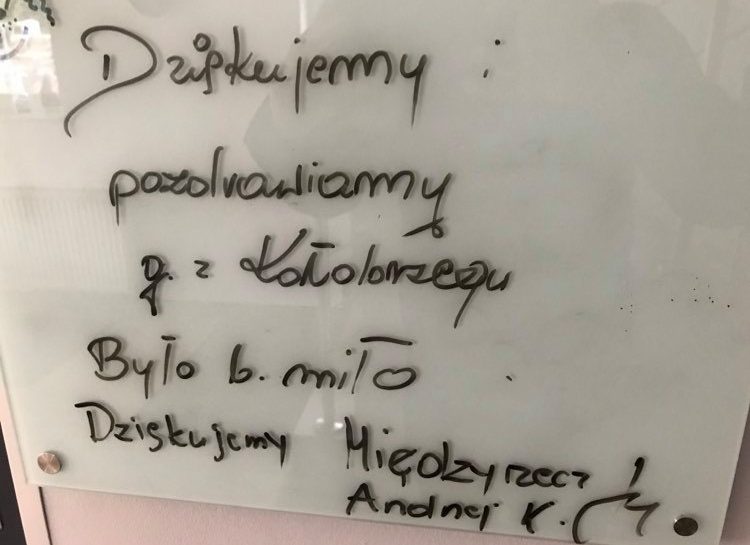 Dziękujemy i
pozdrawiamy
g. z Kołobrzegu
Było b. miło
Dziękujemy Międzyrzecz
Andrzej K.